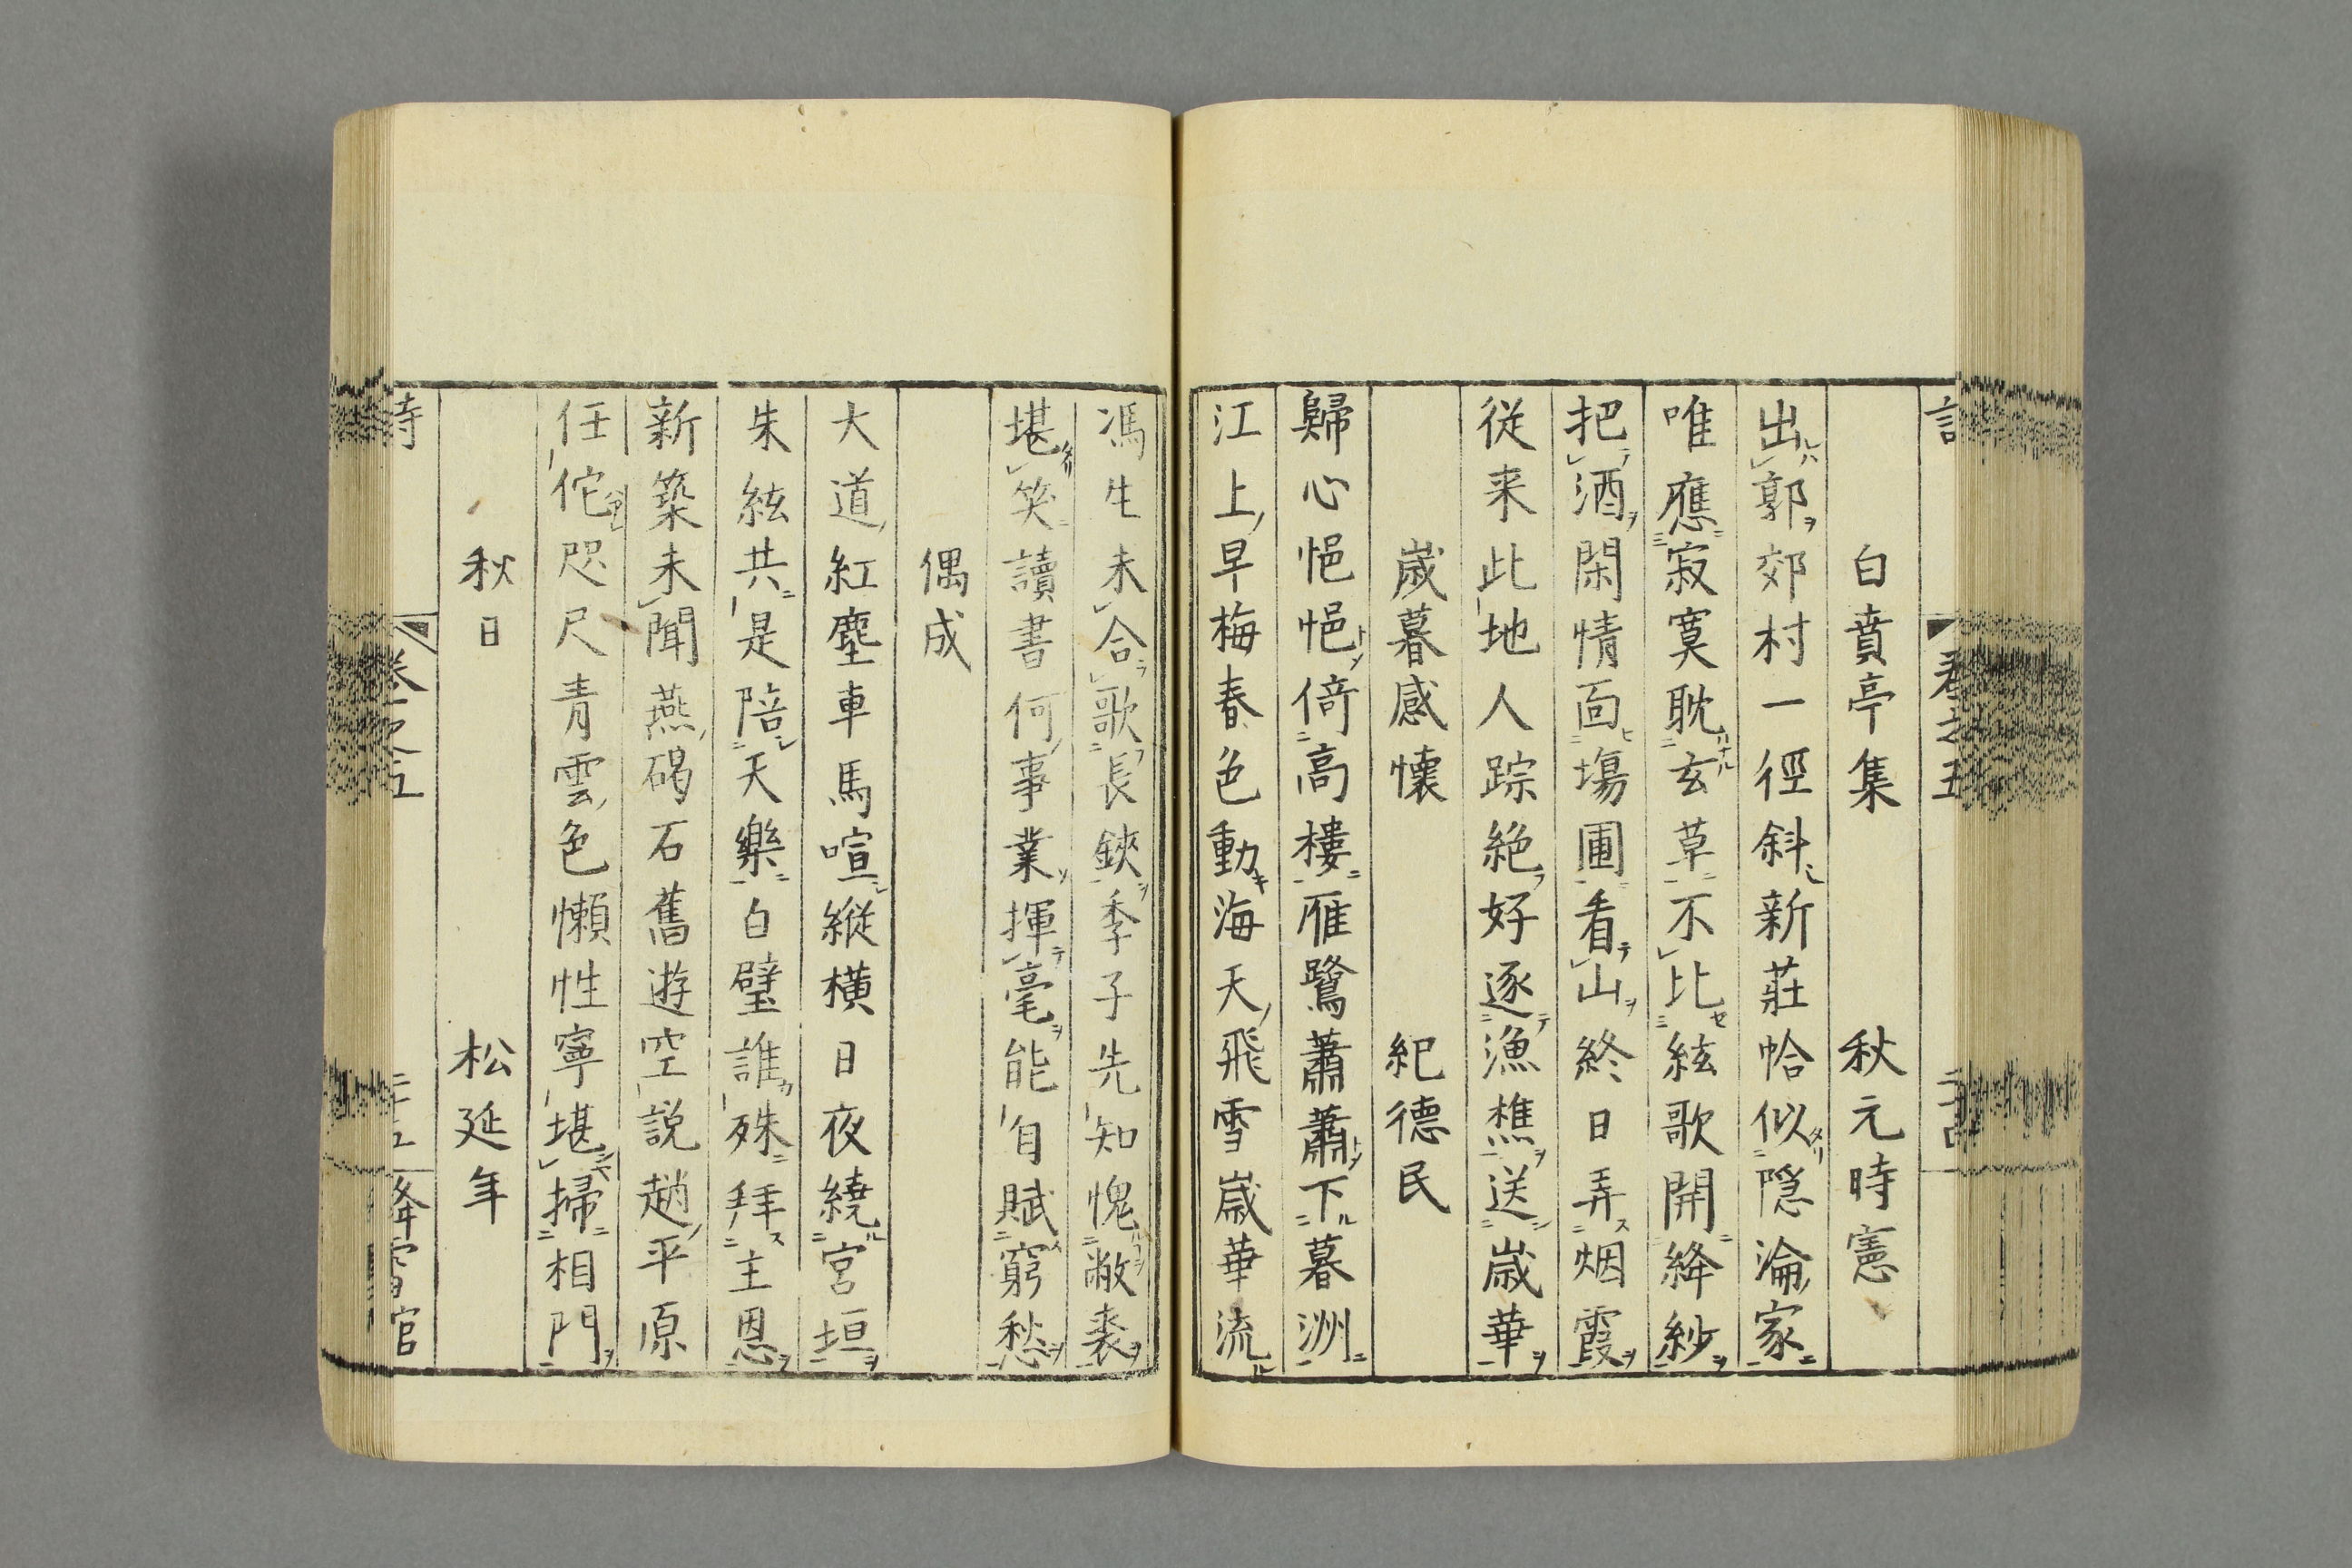 白賁亭集 秋元時憲
出郭郊村一徑斜新莊恰似隠淪家
唯應寂寞耽玄草不比絃歌開絳紗
把酒閑情面場圃看山終日弄烟霞
従来此地人踪絶好逐漁樵送嵗華
嵗暮感懐 紀德民
歸心悒悒倚高樓雁鷺蕭蕭下暮洲
江上早梅春色動海天飛雪嵗華流
馮生未合歌長鋏季子先知愧敝裘
堪笑讀書何事業揮毫能自賦窮愁
偶成
大道紅塵車馬喧縱横日夜繞宮垣
朱絃共是陪天樂白璧誰殊拜主恩
新築未聞燕碣石舊遊空説趙平原
任佗咫尺青雲色懶性寧堪掃相門
秋日 松延年
卷之五